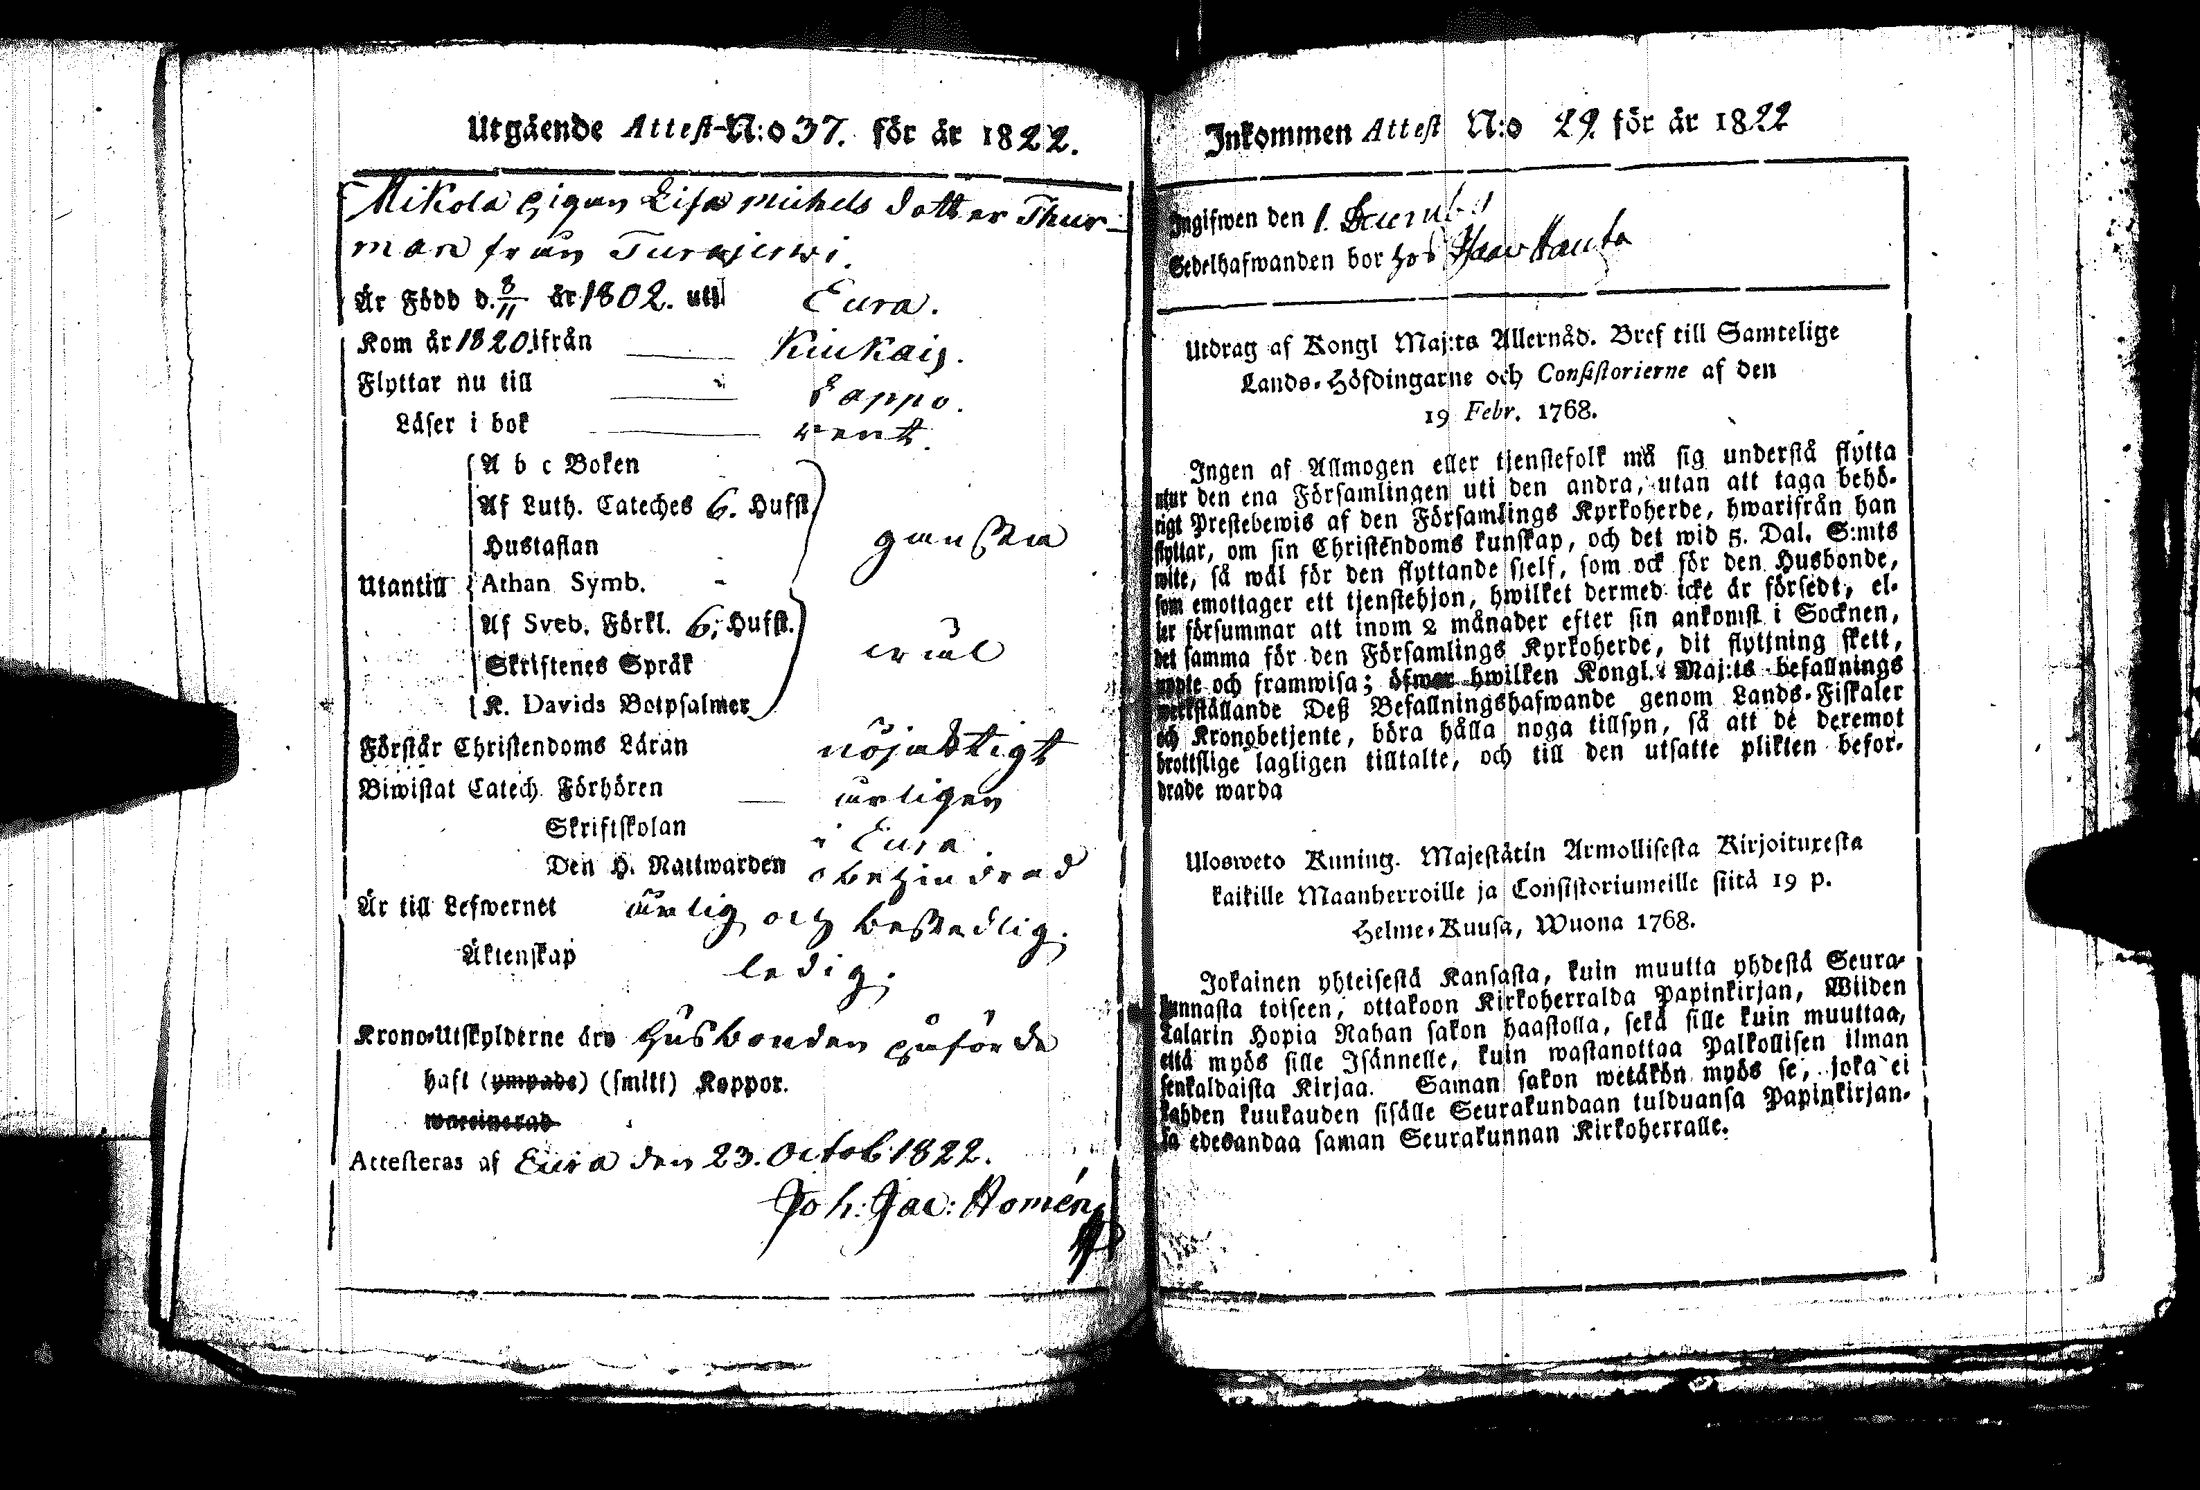 Utgående Attest-N:o 37. för år 1822.
Mikola pigan Lisa Michels dotter Thur-
man från Turajerwi.
Är Född d. 8/11 år 1802. uti Eura.
Kom år 1820. ifrån Kiukais.
Flyttar nu till Lappo.
Läser i bok rent.
Utantill
A b c Boken
Af Luth. Cateches 6. Hufst.
Hustaflan
Athan Symb.
ganska
Af Sveb. Förkl. 6. Hufst.
Skriftenes Språk
K. Davids Botpsalmer
wäl
Förstår Christendoms Läran nöjaktigt
Biwistat Catech. Förhören årligen
Skriftskolan i Eura.
Den H. Nattwarden obehindrad
Är till Lefwernet ärlig och beskedlig.
Äktenskap ledig.
Krono-Utskylderne äro Husbonden påförde
haft (ympade) (smitt) Koppor.
waccinerad
Attesteras af Eura den 23. Octob. 1822.
Joh: Jac: Homén
Inkommen Attest N:o 29 för år 1822
Ingifwen den 1.
Sedelhafwanden bor hos
Utdrag af Kongl Maj:ts Allernåd. Bref till Samtelige
Lands-Höfdingarne och Consistorierne af den
19 Febr. 1768.
Ingen af Allmogen eller tjenstefolk må sig understå flytta
utur den ena Församlingen uti den andra, utan att taga behö-
rigt Prestebewis af den Församlings Kyrkoherde, hwarifrån han
flyttar, om sin Christendoms kunskap, och det wid 5. Dal. S:mts
wite, så wäl för den flyttande sjelf, som ock för den Husbonde,
som emottager ett tjenstehjon, hwilket dermed icke är försedt, el-
ler försummar att inom 2 månader efter sin ankomst i Socknen,
det samma för den Församlings Kyrkoherde, dit flyttning skett,
uppte och framwisa; öfwer hwilken Kongl. Maj:ts befallnings
werkställande Deß Befallningshafwande genom Lands-Fiskaler
och Kronobetjente, böra hålla noga tillsyn, så att de deremot
brottslige lagligen tilltalte, och till den utsatte plikten befor-
drade warda
Ulosweto Kuning. Majestätin Armollisesta Kirjoituxesta
kaikille Maanherroille ja Consistoriumeille siitä 19 p.
Helme-Kuusa, Wuona 1768.
Jokainen yhteisestä Kansasta, kuin muutta yhdestä Seura-
kunnasta toiseen, ottakoon Kirkoherralda Papinkirjan, Wiiden
Talarin Hopia Rahan sakon haastolla, sekä sille kuin muuttaa,
että myös sille Isännelle, kuin wastanottaa Palkollisen ilman
senkaldaista Kirjaa. Saman sakon wetäkön myös se, joka ei
kahden kuukauden sisälle Seurakundaan tulduansa Papinkirjan-
sa edesandaa saman Seurakunnan Kirkoherralle.